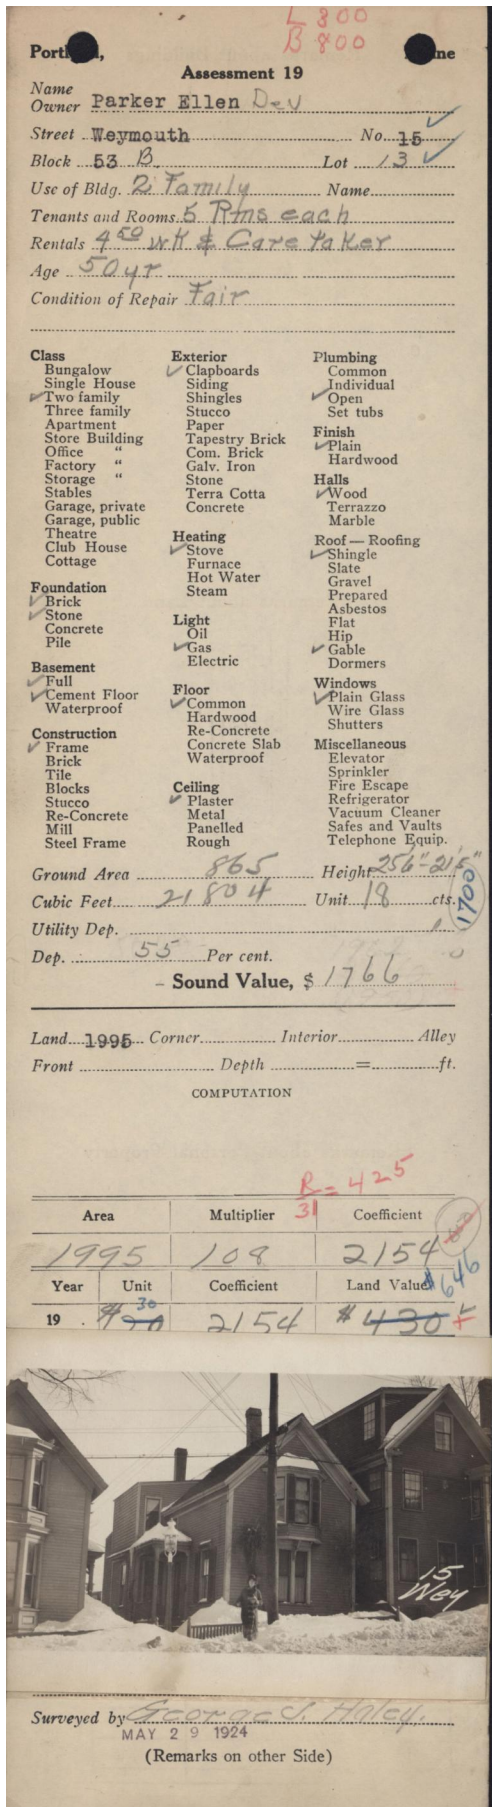 L 300
B 800
Portland, Maine
Assessment 19
Name
Owner Parker Ellen Dev
Street Weymouth No. 15
Block 53 B Lot 13
Use of Bldg. 2 Family Name
Tenants and Rooms 5 Rms each
Rentals 4 50 wk & Care taker
Age 50 yr
Condition of Repair Fair
Class
Bungalow
Single House
Two family
Three family
Apartment
Store Building
Office "
Factory "
Storage "
Stables
Garage, private
Garage, public
Theatre
Club House
Cottage
Foundation
Brick
Stone
Concrete
Pile
Basement
Full
Cement Floor
Waterproof
Construction
Frame
Brick
Tile
Blocks
Stucco
Re-Concrete
Mill
Steel Frame
Exterior
Clapboards
Siding
Shingles
Stucco
Paper
Tapestry Brick
Com. Brick
Galv. Iron
Stone
Terra Cotta
Concrete
Heating
Stove
Furnace
Hot Water
Steam
Light
Oil
Gas
Electric
Floor
Common
Hardwood
Re-Concrete
Concrete Slab
Waterproof
Ceiling
Plaster
Metal
Panelled
Rough
Plumbing
Common
Individual
Open
Set tubs
Finish
Plain
Hardwood
Halls
Wood
Terrazzo
Marble
Roof — Roofing
Shingle
Slate
Gravel
Prepared
Asbestos
Flat
Hip
Gable
Dormers
Windows
Plain Glass
Wire Glass
Shutters
Miscellaneous
Elevator
Sprinkler
Fire Escape
Refrigerator
Vacuum Cleaner
Safes and Vaults
Telephone Equip.
Ground Area 865 Height 25'6"-21'5"
Cubic Feet 21804 Unit 18 cts.
1700
Utility Dep.
Dep. 55 Per cent.
Sound Value, $ 1766
Land 1995 Corner Interior Alley
Front Depth = ft.
COMPUTATION
R = 425
31
Area Multiplier Coefficient
1995 108 2154
Year Unit Coefficient Land Value $646
19 . $20 30 2154 $430
15
Wey
Surveyed by George J. Haley.
MAY 29 1924
(Remarks on other Side)